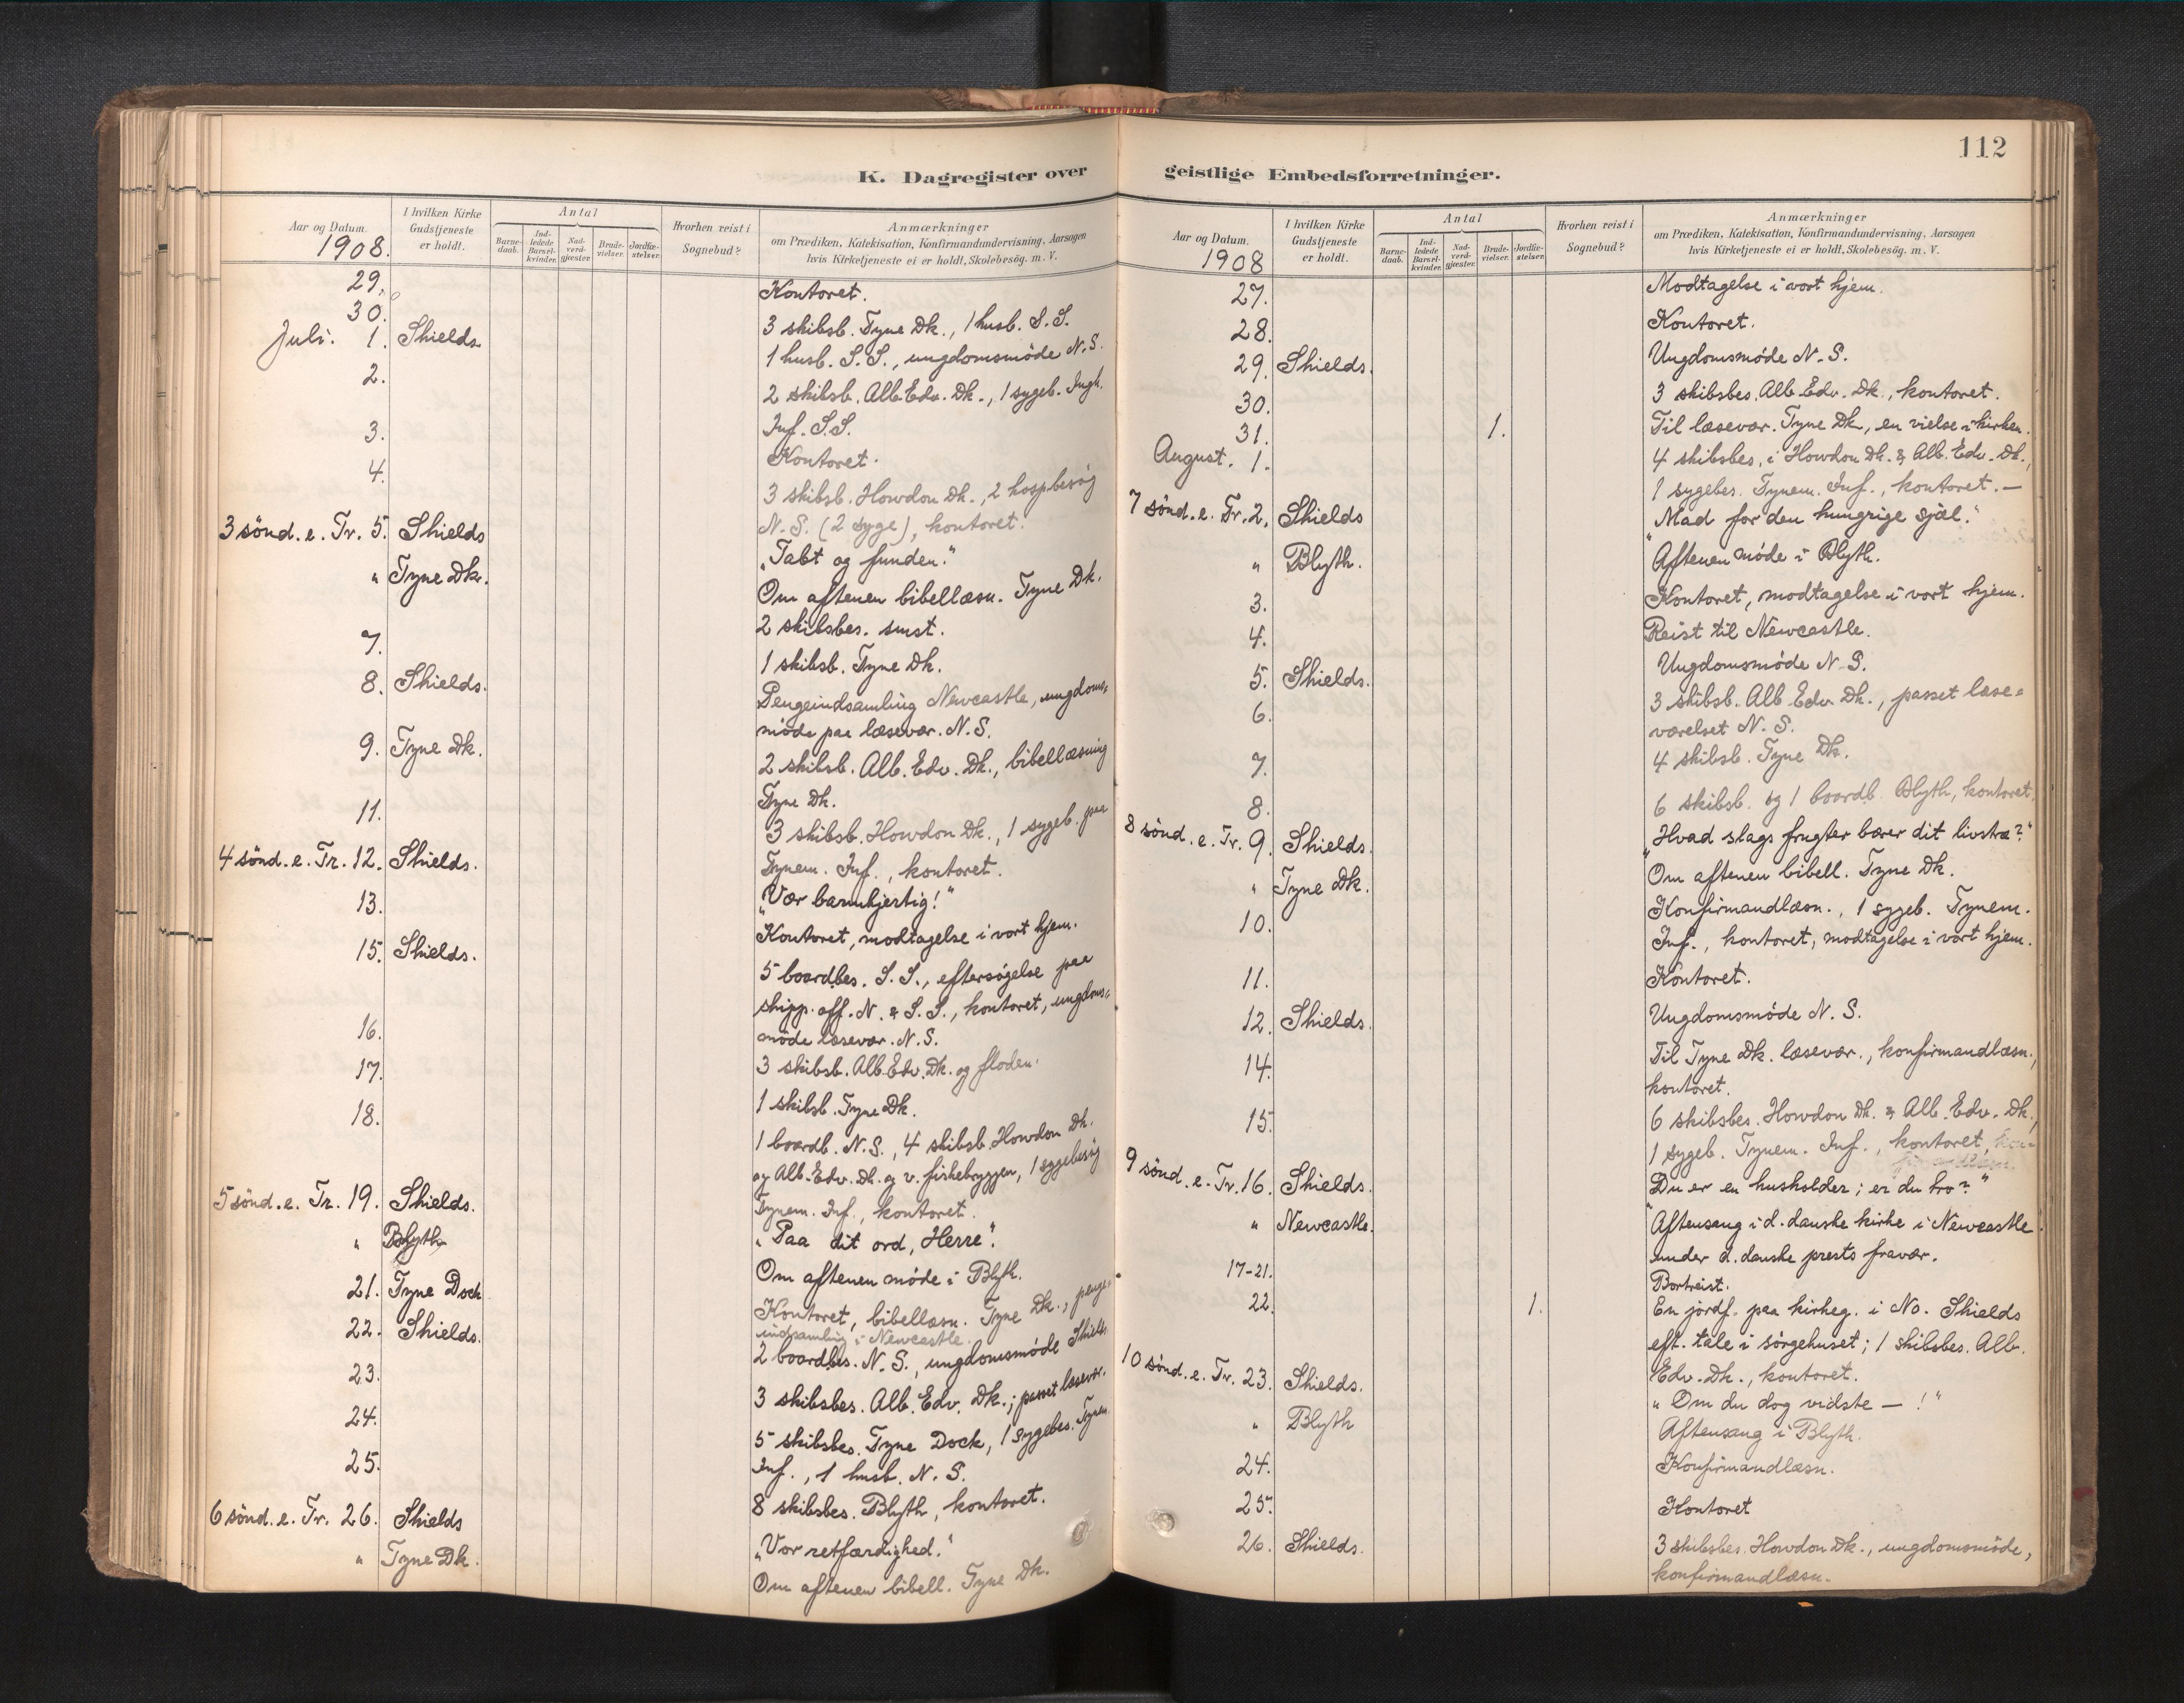 112
K. Dagregister over
Aar og Datum.
1908.
I hvilken Kirke Gudstjeneste er holdt.
Antal
Barne-daab.
Ind-ledede Barsel-kvinder.
Nad-verd-gjæster.
Brude-vielser.
Jordfæ-stelser.
Hvorhen reist i Sognebud?
Anmærkninger
om Prædiken, Katekisation, Konfirmandundervisning, Aarsagen
hvis Kirketjeneste ei er holdt, Skolebesög. m. V.
29. Kontoret.
30. 3 skibsb. Tyne Dk., 1 husb. S.S.
Juli. 1. Shields 1 husb. S.S., ungdomsmöde N.S.
2. 2 skibsb. Alb. Edv. Dk., 1 sygeb. Ingh.
Inf. S.S.
3. Kontoret.
4. 3 skibsb. Howdon Dk., 2 hospbesög
N.S. (2 syge), kontoret.
3 sönd. e. Tr. 5. Shields „Tabt og funden."
" Tyne Dk. Om aftenen bibellæsn. Tyne Dk.
2 skibsbes. smst.
7. 1 skibsb. Tyne Dk.
8. Shields. Pengeindsamling Newcastle, ungdoms-
möde paa læsevær. N.S.
9. Tyne Dk. 2 skibsb. Alb. Edv. Dk., bibellæsning
Tyne Dk.
11. 3 skibsb. Howdon Dk., 1 sygeb. paa
Tynem. Inf., kontoret.
4 sönd. e. Tr. 12. Shields. „Vær barmhjertig!"
13. Kontoret, modtagelse i vort hjem.
15. Shields. 5 boardbes. S.S., eftersögelse paa
shipp. off. N. & S.S., kontoret, ungdoms-
möde læsevær. N.S.
16. 3 skibsb. Alb. Edv. Dk. og floden.
17. 1 skibsb. Tyne Dk.
18. 1 boardb. N.S., 4 skibsb. Howdon Dk.
og Alb. Edv. Dk. og v. fiskebryggen, 1 sygebesög
Tynem. Inf., kontoret.
5 sönd. e. Tr. 19. Shields. „Paa dit ord, Herre".
" Blyth Om aftenen möde i Blyth.
21. Tyne Dock Kontoret, bibellæsn. Tyne Dk., penge-
indsamling i Newcastle.
22. Shields. 2 boardbes. N.S., ungdomsmöde Shields
23. 3 skibsbes. Alb. Edv. Dk.; passet læsevær.
24. 5 skibsbes. Tyne Dock, 1 sygebes. Tynem.
Inf., 1 husb. N.S.
25. 8 skibsbes. Blyth, kontoret.
6 sönd. e. Tr. 26. Shields „Vor retfærdighed."
" Tyne Dk. Om aftenen bibell. Tyne Dk.
geistlige Embedsforretninger.
Aar og Datum.
1908
I hvilken Kirke Gudstjeneste er holdt.
Antal
Barne-daab.
Ind-ledede Barsel-kvinder.
Nad-verd-gjæster.
Brude-vielser.
Jordfæ-stelser.
Hvorhen reist i Sognebud?
Anmærkninger
om Prædiken, Katekisation, Konfirmandundervisning, Aarsagen
hvis Kirketjeneste ei er holdt, Skolebesög. m. V.
27. Modtagelse i vort hjem.
28. Kontoret.
29. Shields. Ungdomsmöde N.S.
30. 3 skibsbes. Alb. Edv. Dk., kontoret.
31. 1. Til læsevær. Tyne Dk., en vielse i kirken.
August. 1. 4 skibsbes. i Howdon Dk. & Alb. Edv. Dk.,
1 sygebes. Tynem. Inf., kontoret. —
7 sönd. e. Tr. 2. Shields „Mad for den hungrige sjæl."
" Blyth. Aftenen möde i Blyth.
3. Kontoret, modtagelse i vort hjem.
4. Reist til Newcastle.
5. Shields. Ungdomsmöde N.S.
6. 3 skibsb. Alb. Edv. Dk., passet læse-
værelset N.S.
7. 4 skibsb. Tyne Dk.
8. 6 skibsb. og 1 boardb. Blyth, kontoret.
8 sönd. e. Tr. 9. Shields. „Hvad slags frugter bærer dit livstræ?"
" Tyne Dk. Om aftenen bibell. Tyne Dk.
10. Konfirmandlæsn., 1 sygeb. Tynem.
Inf., kontoret, modtagelse i vort hjem.
11. Kontoret.
12. Shields. Ungdomsmöde N.S.
14. Til Tyne Dk. læsevær., konfirmandlæsn.,
kontoret.
15. 6 skibsbes. Howdon Dk. & Alb. Edv. Dk.,
1 sygeb. Tynem. Inf., kontoret,
9 sönd. e. Tr. 16. Shields. „Du er en husholder; er du tro?"
" Newcastle. Aftensang i d. danske kirke i Newcastle
under d. danske prests fravær.
17-21. Bortreist.
22. 1. En jordf. paa kirkeg. i No. Shields
eft. tale i sörgehuset; 1 skibsbes. Alb.
Edv. Dk., kontoret.
10 sönd. e. Tr. 23. Shields. „Om du dog vidste — !"
" Blyth Aftensang i Blyth.
24. Konfirmandlæsn.
25. Kontoret
26. Shields. 3 skibsbes. Howdon Dk., ungdomsmöde,
konfirmandlæsn.